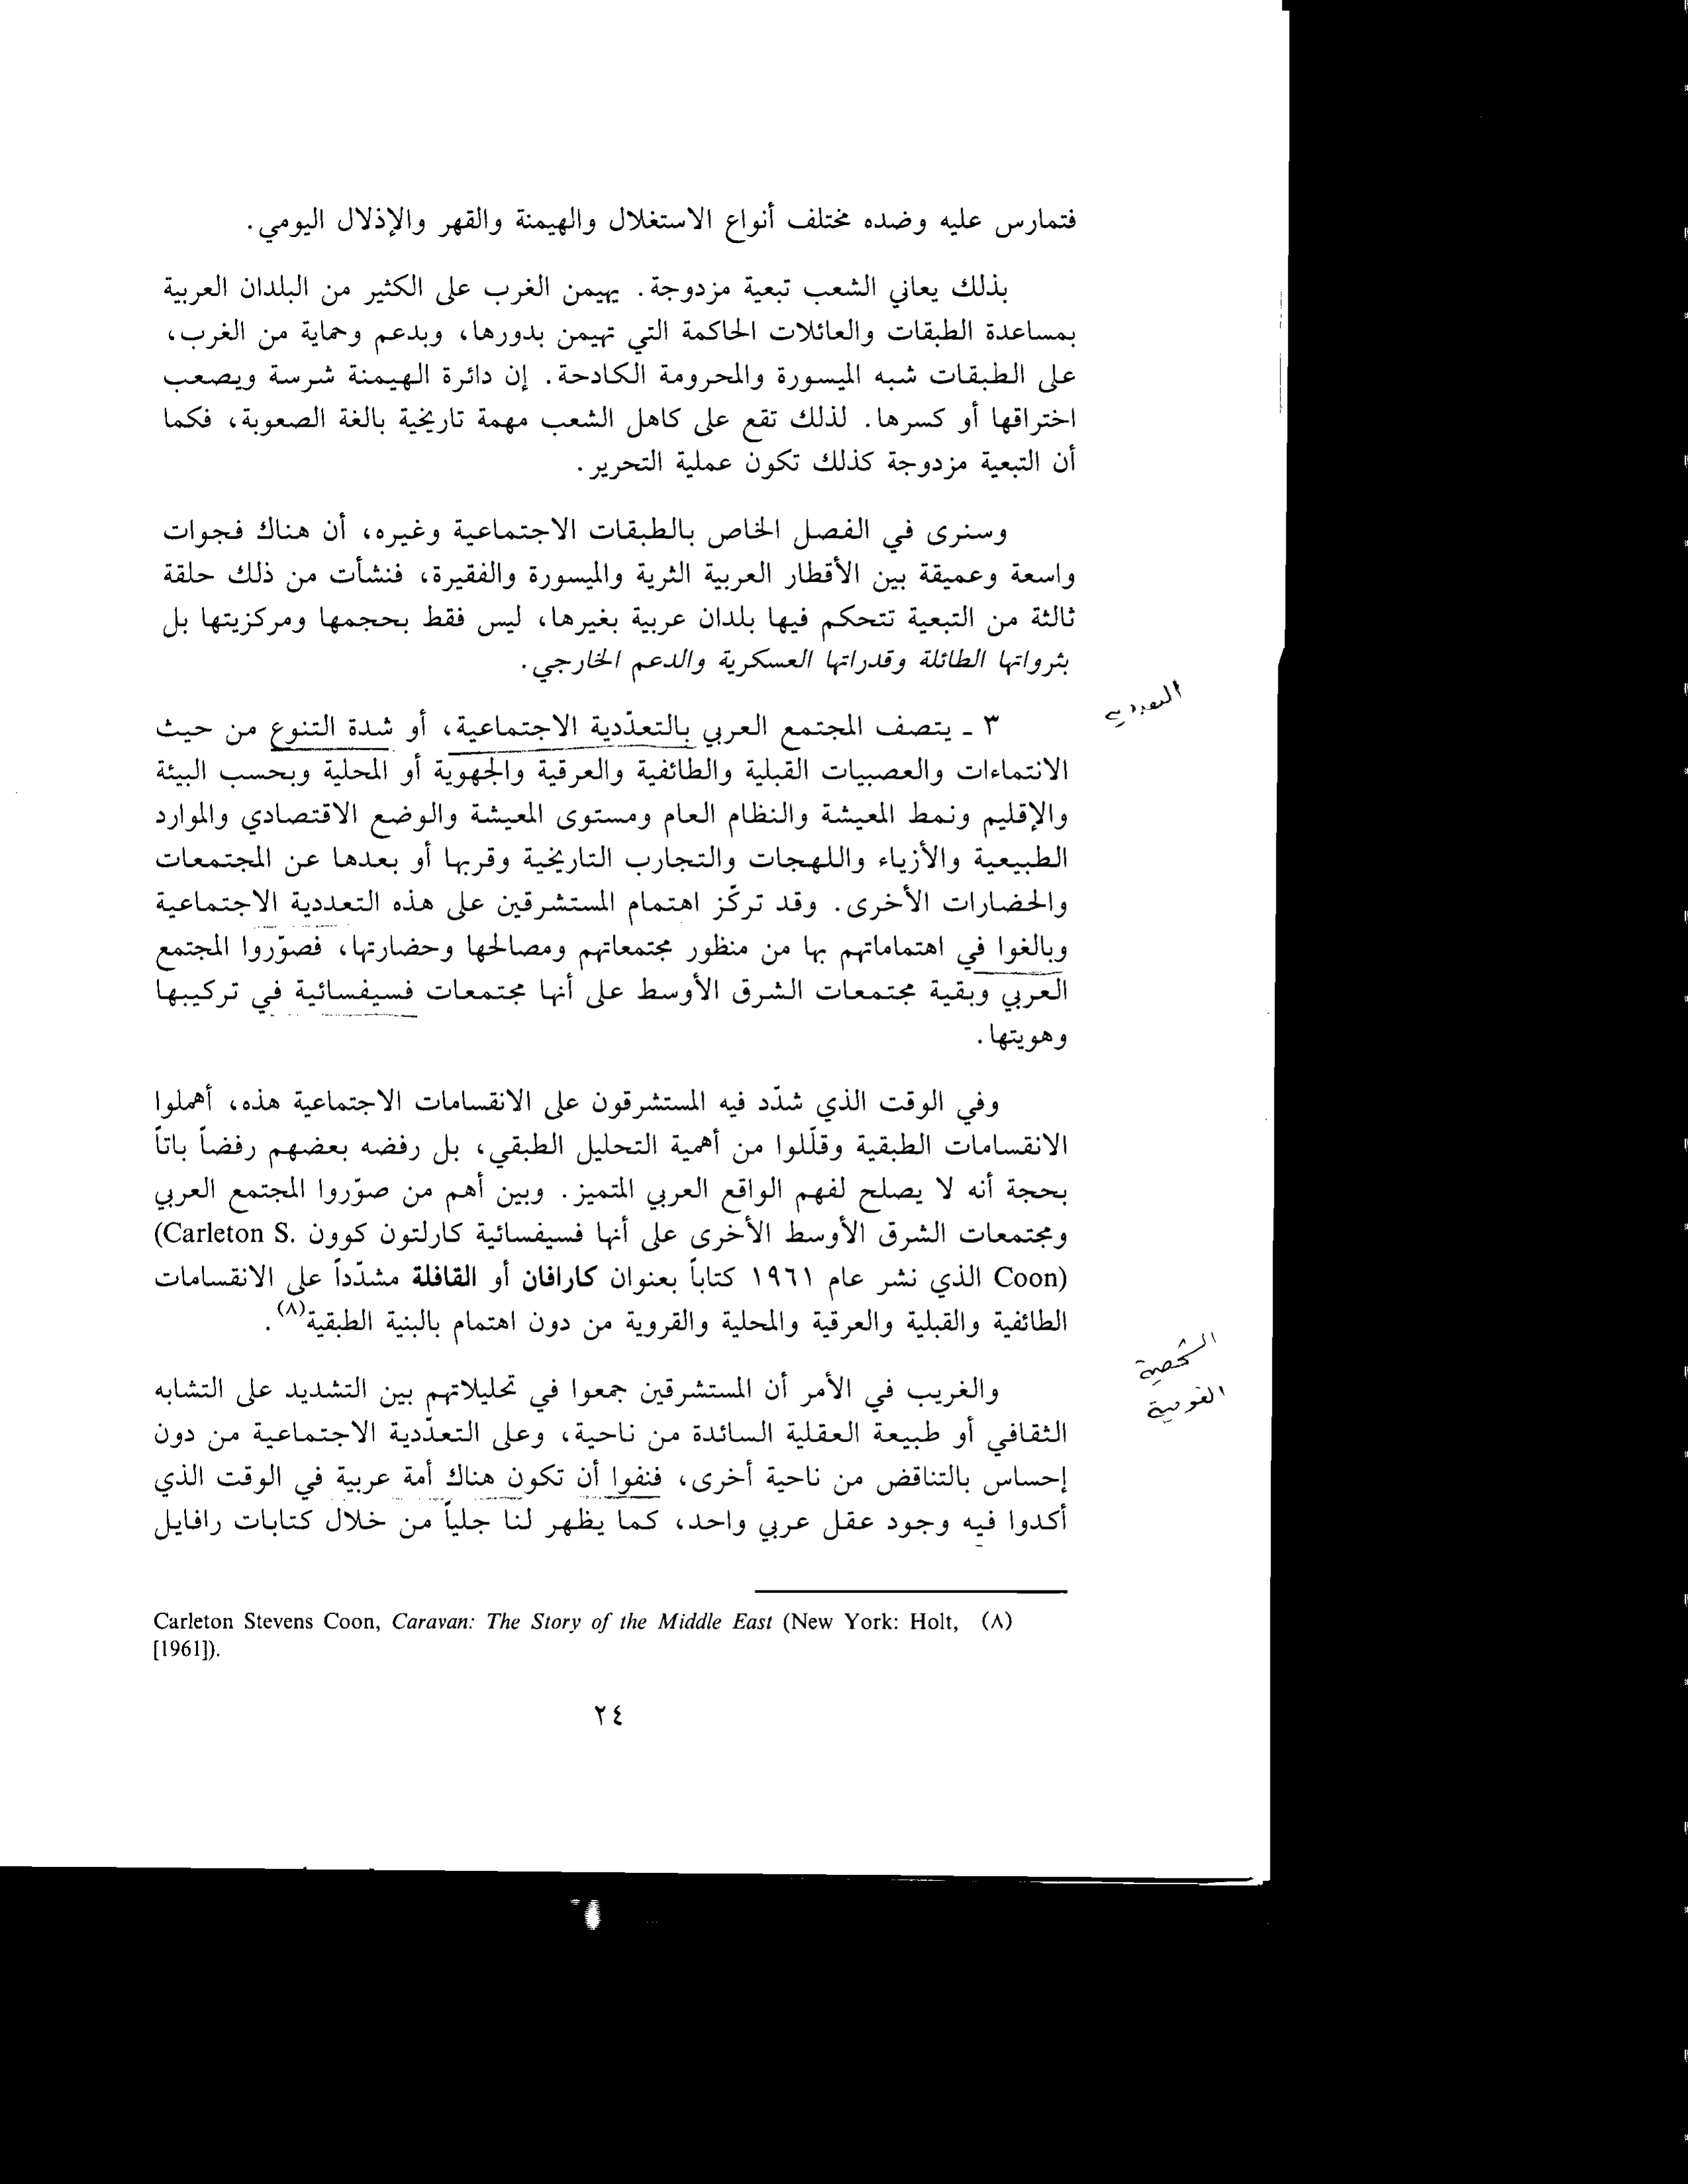 فتمارس عليه وضده مختلف أنواع الاستغلال والهيمنة والقهر والإذلال اليومي.
بذلك يعاني الشعب تبعية مزدوجة. يهيمن الغرب على الكثير من البلدان العربية
بمساعدة الطبقات والعائلات الحاكمة التي تهيمن بدورها، وبدعم وحماية من الغرب،
على الطبقات شبه الميسورة والمحرومة الكادحة. إن دائرة الهيمنة شرسة ويصعب
اختراقها أو كسرها. لذلك تقع على كاهل الشعب مهمة تاريخية بالغة الصعوبة، فكما
أن التبعية مزدوجة كذلك تكون عملية التحرير.
وسنرى في الفصل الخاص بالطبقات الاجتماعية وغيره، أن هناك فجوات
واسعة وعميقة بين الأقطار العربية الثرية والميسورة والفقيرة، فنشأت من ذلك حلقة
ثالثة من التبعية تتحكم فيها بلدان عربية بغيرها، ليس فقط بحجمها ومركزيتها بل
بثرواتها الطائلة وقدراتها العسكرية والدعم الخارجي.
التعددية
٣ ـ يتصف المجتمع العربي بالتعدّدية الاجتماعية، أو شدة التنوع من حيث
الانتماءات والعصبيات القبلية والطائفية والعرقية والجهوية أو المحلية وبحسب البيئة
والإقليم ونمط المعيشة والنظام العام ومستوى المعيشة والوضع الاقتصادي والموارد
الطبيعية والأزياء واللهجات والتجارب التاريخية وقربها أو بعدها عن المجتمعات
والحضارات الأخرى. وقد تركّز اهتمام المستشرقين على هذه التعددية الاجتماعية
وبالغوا في اهتماماتهم بها من منظور مجتمعاتهم ومصالحها وحضارتها، فصوّروا المجتمع
العربي وبقية مجتمعات الشرق الأوسط على أنها مجتمعات فسيفسائية في تركيبها
وهويتها.
وفي الوقت الذي شدّد فيه المستشرقون على الانقسامات الاجتماعية هذه، أهملوا
الانقسامات الطبقية وقلّلوا من أهمية التحليل الطبقي، بل رفضه بعضهم رفضاً باتاً
بحجة أنه لا يصلح لفهم الواقع العربي المتميز. وبين أهم من صوّروا المجتمع العربي
ومجتمعات الشرق الأوسط الأخرى على أنها فسيفسائية كارلتون كوون (Carleton S.
Coon) الذي نشر عام ١٩٦١ كتاباً بعنوان كارافان أو القافلة مشدّداً على الانقسامات
الطائفية والقبلية والعرقية والمحلية والقروية من دون اهتمام بالبنية الطبقية(٨).
الشخصية
القومية
والغريب في الأمر أن المستشرقين جمعوا في تحليلاتهم بين التشديد على التشابه
الثقافي أو طبيعة العقلية السائدة من ناحية، وعلى التعدّدية الاجتماعية من دون
إحساس بالتناقض من ناحية أخرى، فنفوا أن تكون هناك أمة عربية في الوقت الذي
أكدوا فيه وجود عقل عربي واحد، كما يظهر لنا جلياً من خلال كتابات رافايل
(٨) Carleton Stevens Coon, Caravan: The Story of the Middle East (New York: Holt,
[1961]).
٢٤